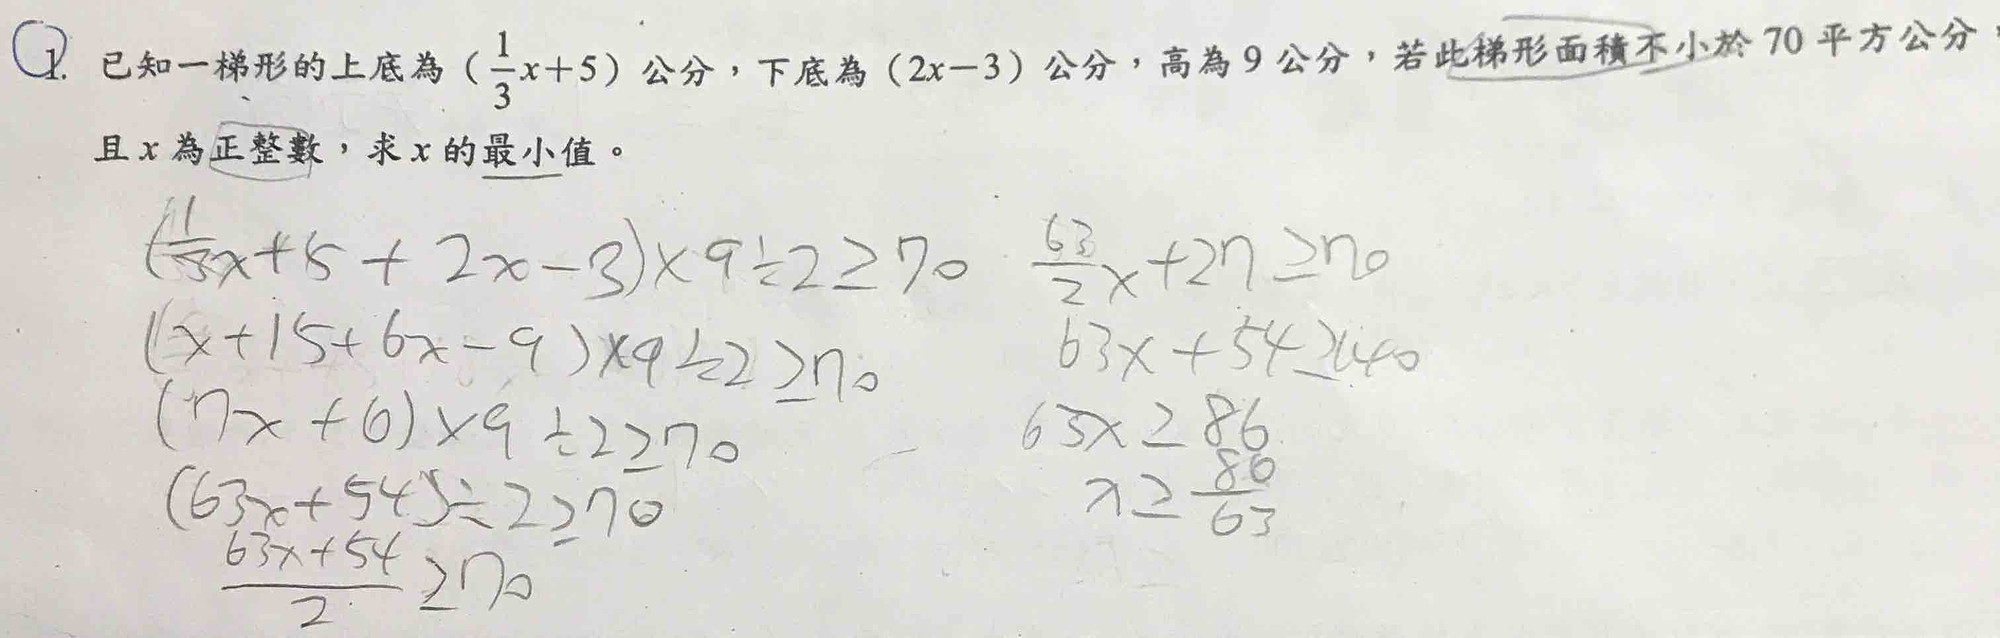 1. 已知一梯形的上底為（1/3x+5）公分，下底為（2x-3）公分，高為9公分，若此梯形面積不小於70平方公分，
且x為正整數，求x的最小值。
(1/3x+5+2x-3)×9÷2≥70
(x+15+6x-9)×9÷2≥70
(7x+6)×9÷2≥70
(63x+54)÷2≥70
63x+54/2≥70
63/2x+27≥70
63x+54≥140
63x≥86
x≥86/63